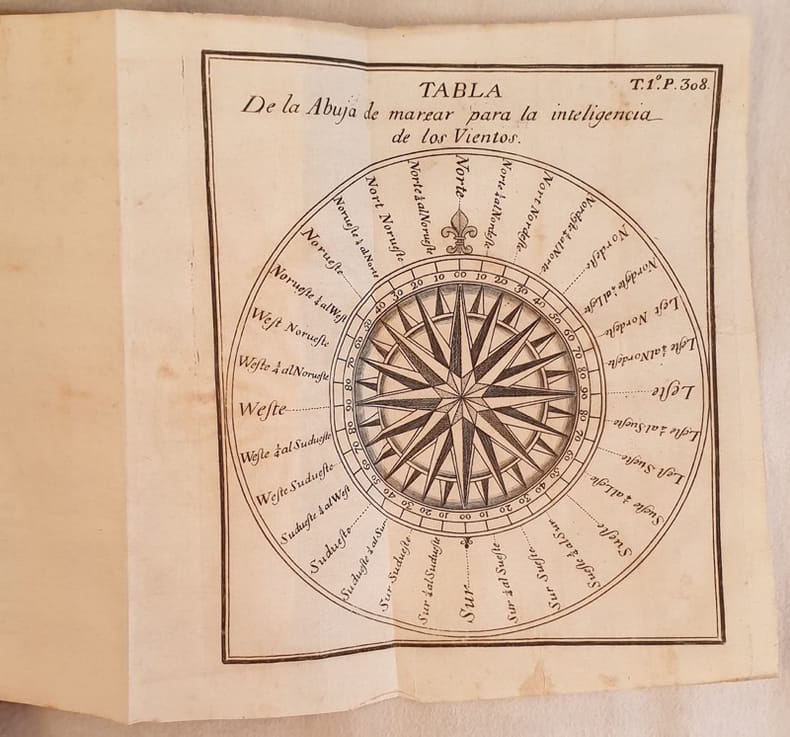 TABLA
T.1º.P.308.
De la Abuja de marear para la inteligencia
de los Vientos.
Norte
Norte ¼ al Nordeſte
Nort Nordeſte
Nordeſte ¼ al Norte
Nordeſte
Nordeſte ¼ al Leſte
Leſt Nordeſte
Leſte ¼ al Nordeſte
Leſte
Leſte ¼ al Sueſte
Leſt Sueſte
Sueſte ¼ al Leſte
Sueſte
Sueſte ¼ al Sur
Sur Sueſte
Sur ¼ al Sueſte
Sur
Sur ¼ al Sudueſte
Sur Sudueſte
Sudueſte ¼ al Sur
Sudueſte
Sudueſte ¼ al Weſt
Weſte Sudueſte
Weſte ¼ al Sudueſte
Weſte
Weſte ¼ al Norueſte
Weſt Norueſte
Norueſte ¼ al Weſt
Norueſte
Norueſte ¼ al Norte
Nort Norueſte
Norte ¼ al Norueſte
00 10 20 30 40 50 60 70 80 90 80 70 60 50 40 30 20 10 00 10 20 30 40 50 60 70 80 90 80 70 60 50 40 30 20 10